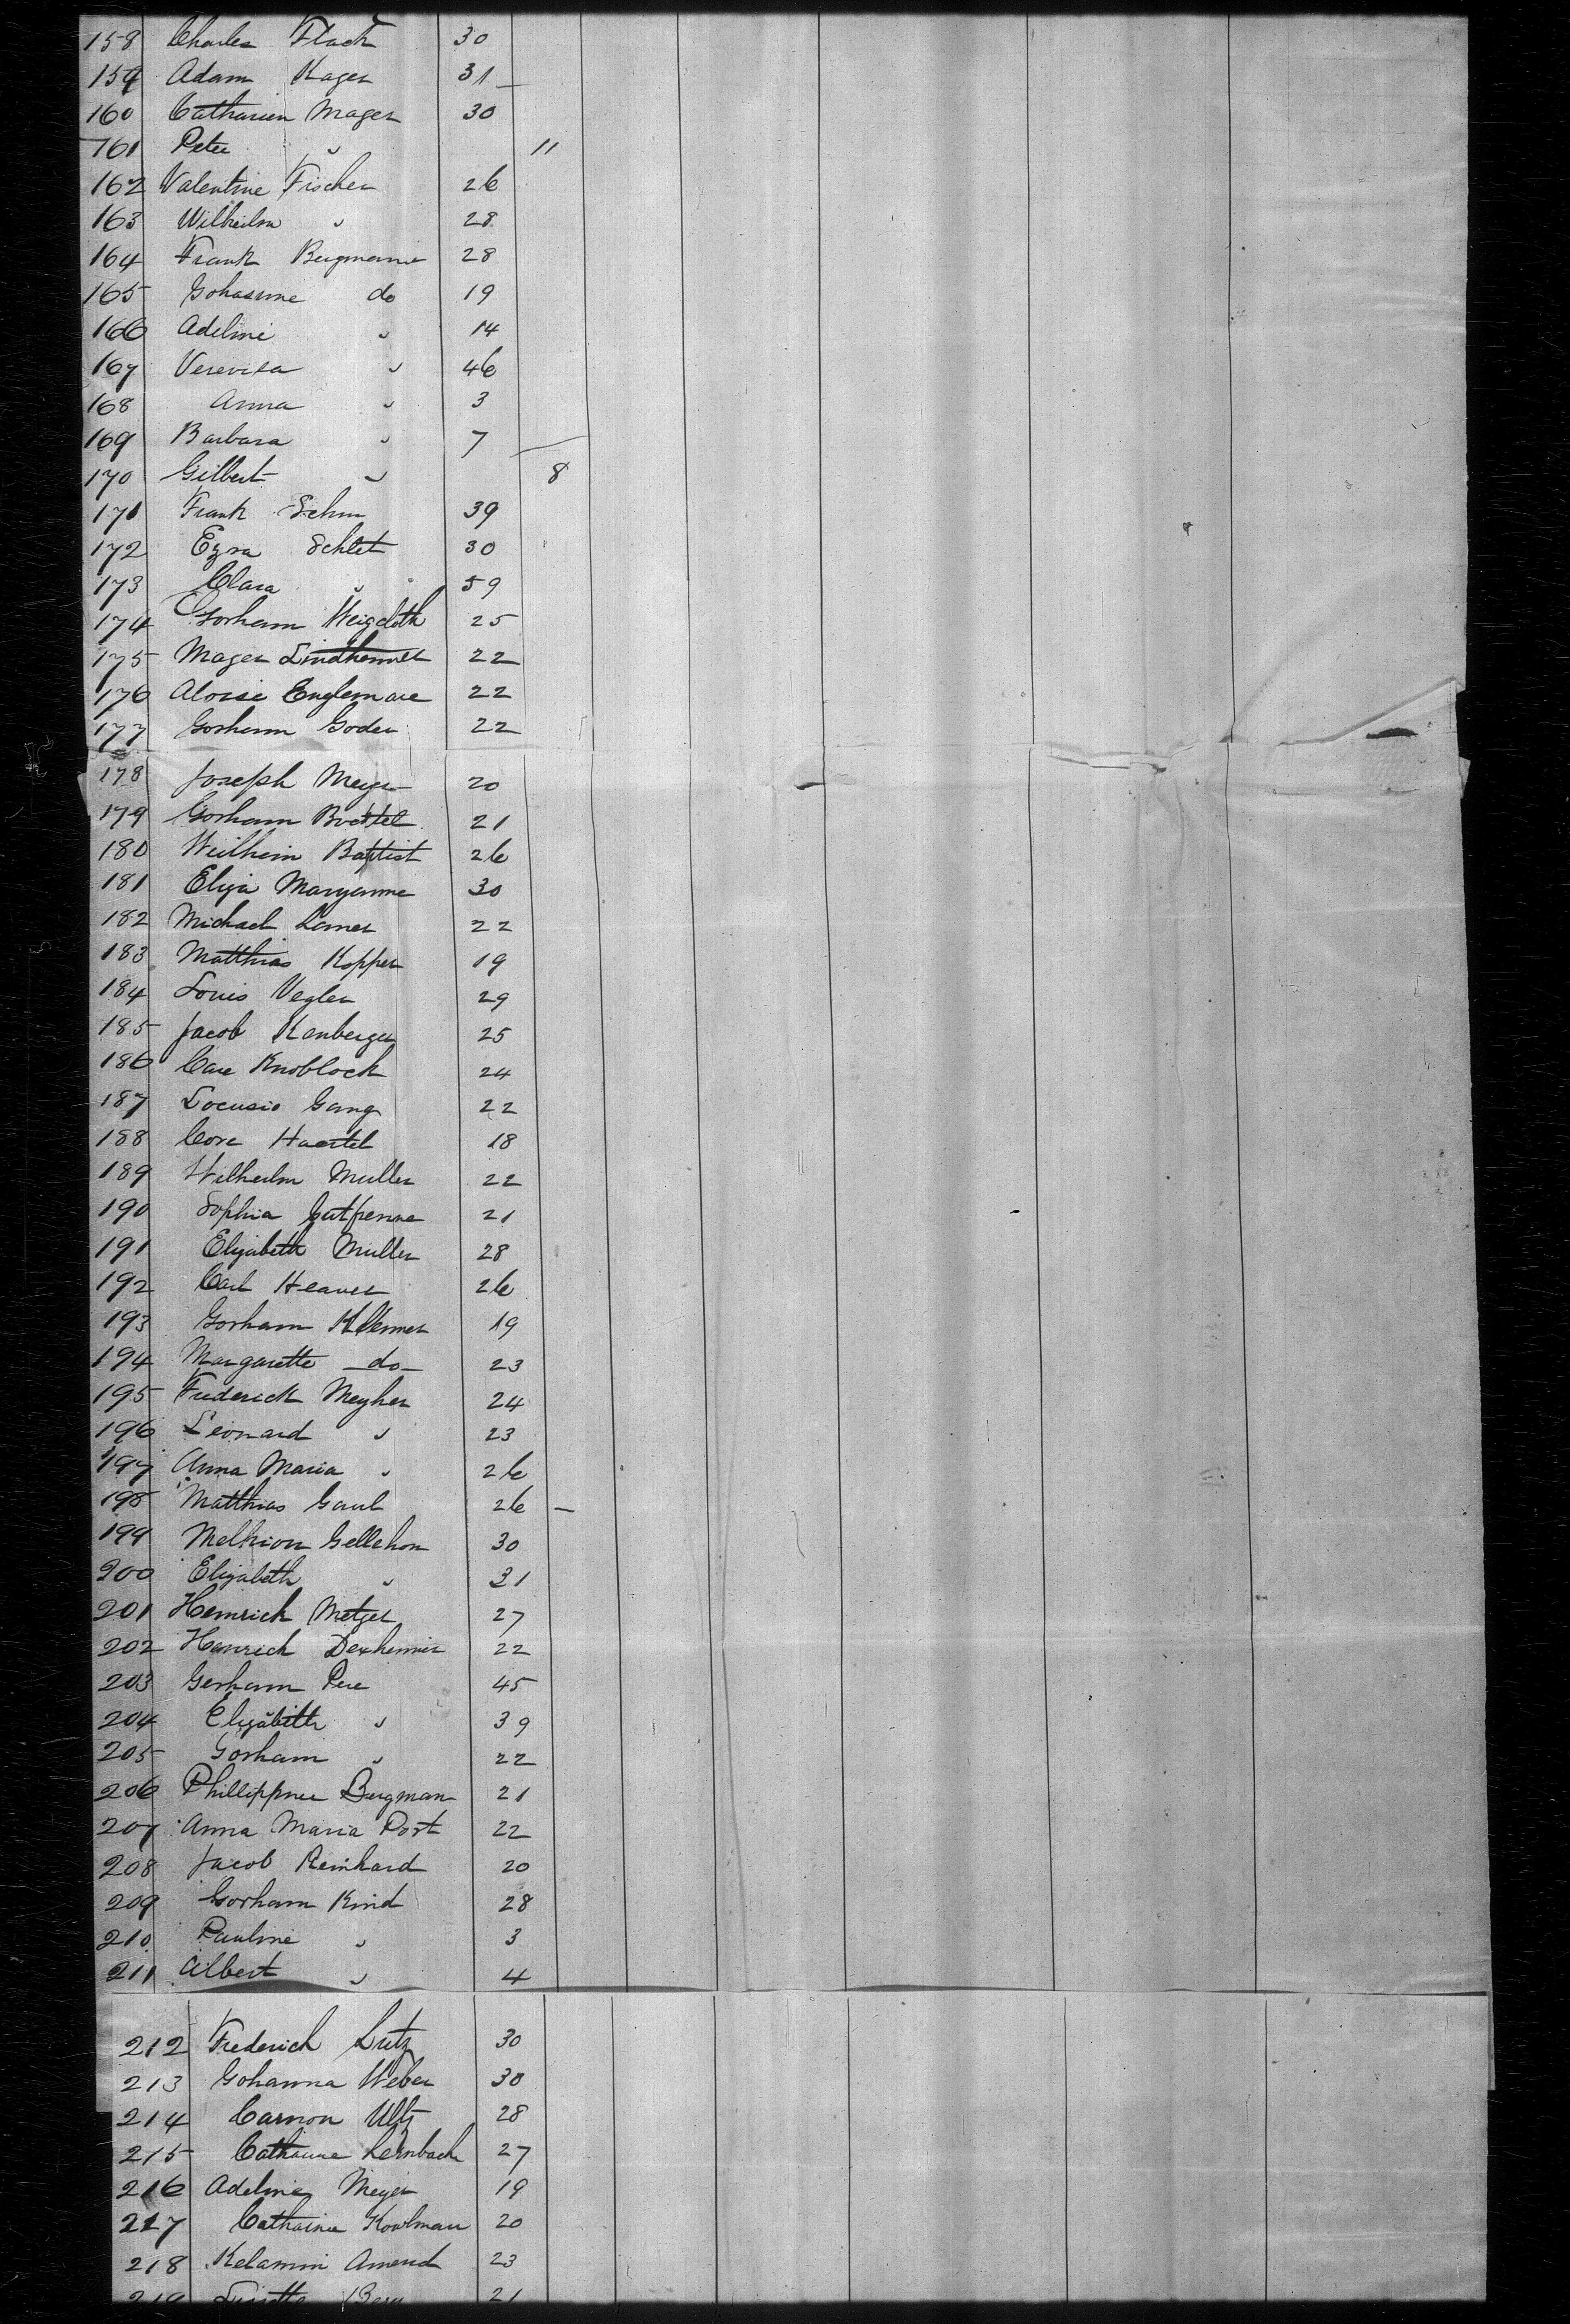 158 Charles Flach 30
159 Adam Kager 31 -
160 Catharien Mager 30
161 Peter " 11
162 Valentine Fischer 26
163 Wilheilm " 28
164 Frank Bergmann 28
165 Gohanne do 19
166 Adeline " 14
167 " 46
168 Anna " 3
169 Barbara " 7
170 Gilbert " 8
171 Frank Sehm 39
172 Ezra Schlet 30
173 Clara " 59
174 Gorham Weigeloth 25
175 Mager Lindhemmer 22
176 Aloise Englemare 22
177 Gorham Goder 22
178 Joseph Meyer 20
179 Gorham Boettel 21
180 Weilheim Baptist 26
181 Eliza Maryanne 30
182 Michael Lamer 22
183 Matthias Kopper 19
184 Louis Vegler 29
185 Jacob Kanberger 25
186 Care Knoblock 24
187 Locusio Gang 22
188 Core Haertel 18
189 Wilheilm Muller 22
190 Sophia 21
191 Elizabeth Muller 28
192 Carl Heaver 26
193 Gorham Klemmer 19
194 Margarette -do- 23
195 Frederick Meyher 24
196 Leonard " 23
197 Anna Maria " 26
198 Matthias Gaul 26 -
199 Melhion Gellehon 30
200 Elizabeth " 31
201 Hemrich Metzer 27
202 Hanrich Dexhemier 22
203 Gerham Pere 45
204 Elizabeth " 39
205 Gorham " 22
206 Phillippnee Bergman 21
207 Anna Maria Post 22
208 Jacob Reinhard 20
209 Gorham Kind 28
210 Pauline " 3
211 Albert " 4
212 Frederich Lutz 30
213 Gohanna Weber 30
214 Carnon Ultz 28
215 Catharine Leinbach 27
216 Adeline Meyer 19
217 Catharine Kowlman 20
218 Kelamin Amend 23
219 21